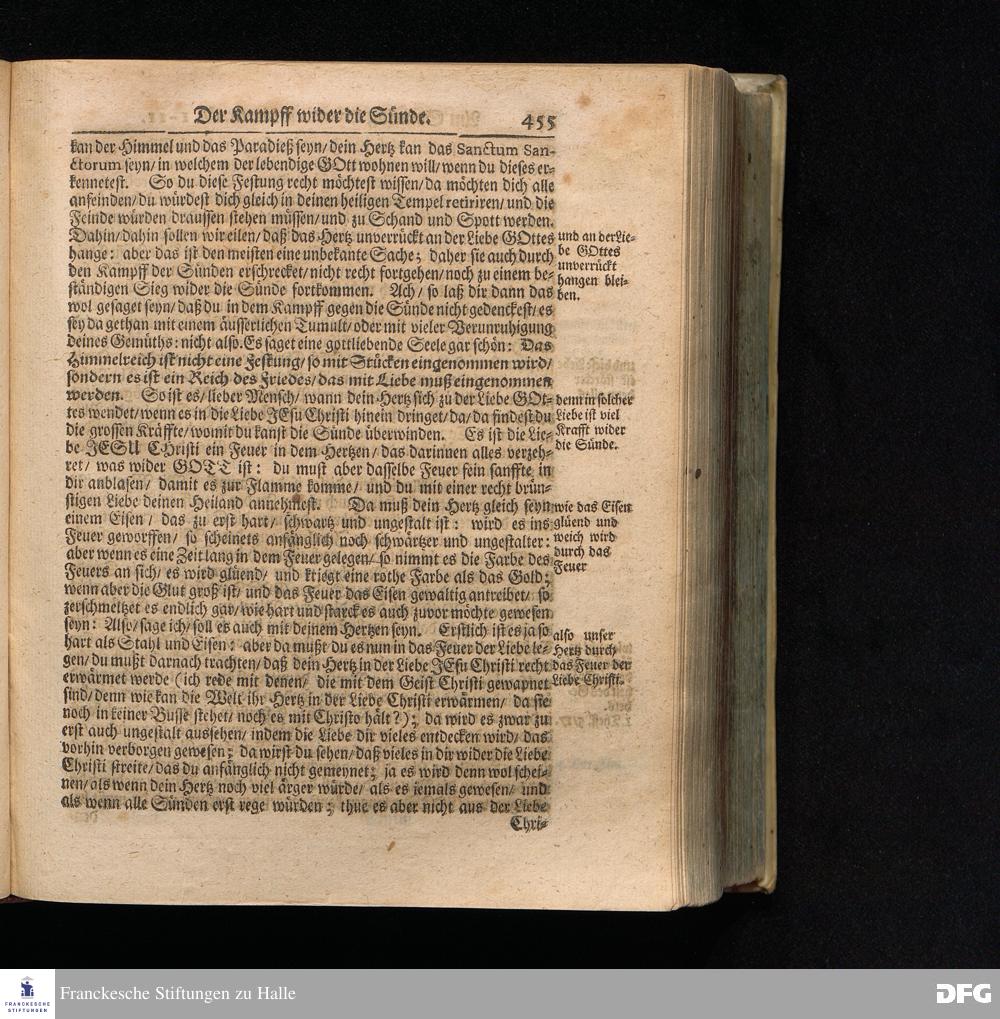 Der Kampff wider die Sünde. 455
kan der Himmel und das Paradieß seyn/ dein Hertz kan das Sanctum San-
ctorum seyn/ in welchem der lebendige GOtt wohnen will/ wenn du dieses er-
kennetest. So du diese Festung recht möchtest wissen/ da möchten dich alle
anfeinden/ du würdest dich gleich in deinen heiligen Tempel retiriren/ und die
Feinde würden draussen stehen müssen/ und zu Schand und Spott werden.
Dahin/ dahin sollen wir eilen/ daß das Hertz unverrückt an der Liebe GOttes
hange: aber das ist den meisten eine unbekante Sache; daher sie auch durch
den Kampff der Sünden erschrecket/ nicht recht fortgehen/ noch zu einem be-
ständigen Sieg wider die Sünde fortkommen. Ach/ so laß dir dann das
wol gesaget seyn/ daß du in dem Kampff gegen die Sünde nicht gedenckest/ es
sey da gethan mit einem äusserlichen Tumult/ oder mit vieler Verunruhigung
deines Gemüths: nicht also. Es saget eine gottliebende Seele gar schön: Das
Himmelreich ist nicht eine Festung/ so mit Stücken eingenommen wird/
sondern es ist ein Reich des Friedes/ das mit Liebe muß eingenommen
werden. So ist es/ lieber Mensch/ wann dein Hertz sich zu der Liebe GOt-
tes wendet/ wenn es in die Liebe JEsu Christi hinein dringet/ da/ da findest du
die grossen Kräffte/ womit du kanst die Sünde überwinden. Es ist die Lie-
be JESU CHristi ein Feuer in dem Hertzen/ das darinnen alles verzeh-
ret/ was wider GOTT ist: du must aber dasselbe Feuer fein sanffte in
dir anblasen/ damit es zur Flamme komme/ und du mit einer recht brün-
stigen Liebe deinen Heiland annehmest. Da muß dein Hertz gleich seyn
einem Eisen/ das zu erst hart/ schwartz und ungestalt ist: wird es ins
Feuer geworffen/ so scheinets anfänglich noch schwärtzer und ungestalter:
aber wenn es eine Zeit lang in dem Feuer gelegen/ so nimmt es die Farbe des
Feuers an sich/ es wird glüend/ und kriegt eine rothe Farbe als das Gold;
wenn aber die Glut groß ist/ und das Feuer das Eisen gewaltig antreibet/ so
zerschmeltzet es endlich gar/ wie hart und starck es auch zuvor möchte gewesen
seyn: Also/ sage ich/ soll es auch mit deinem Hertzen seyn. Erstlich ist es ja so
hart als Stahl und Eisen: aber da mußt du es nun in das Feuer der Liebe le-
gen/ du mußt darnach trachten/ daß dein Hertz in der Liebe JEsu Christi recht
erwärmet werde (ich rede mit denen/ die mit dem Geist Christi gewapnet
sind/ denn wie kan die Welt ihr Hertz in der Liebe Christi erwärmen/ da sie
noch in keiner Busse stehet/ noch es mit Christo hält?); da wird es zwar zu
erst auch ungestalt aussehen/ indem die Liebe dir vieles entdecken wird/ das
vorhin verborgen gewesen; da wirst du sehen/ daß vieles in dir wider die Liebe
Christi streite/ das du anfänglich nicht gemeynet; ja es wird denn wol schei-
nen/ als wenn dein Hertz noch viel ärger würde/ als es jemals gewesen/ und
als wenn alle Sünden erst rege würden; thue es aber nicht aus der Liebe
Chri-
und an der Lie-
be GOttes
unverrückt
hangen blei-
ben.
denn in solcher
Liebe ist viel
Krafft wider
die Sünde.
wie das Eisen
glüend und
weich wird
durch das
Feuer
also unser
Hertz durch
das Feuer der
Liebe Christi.
FRANCKESCHE
STIFTUNGEN
Franckesche Stiftungen zu Halle
DFG